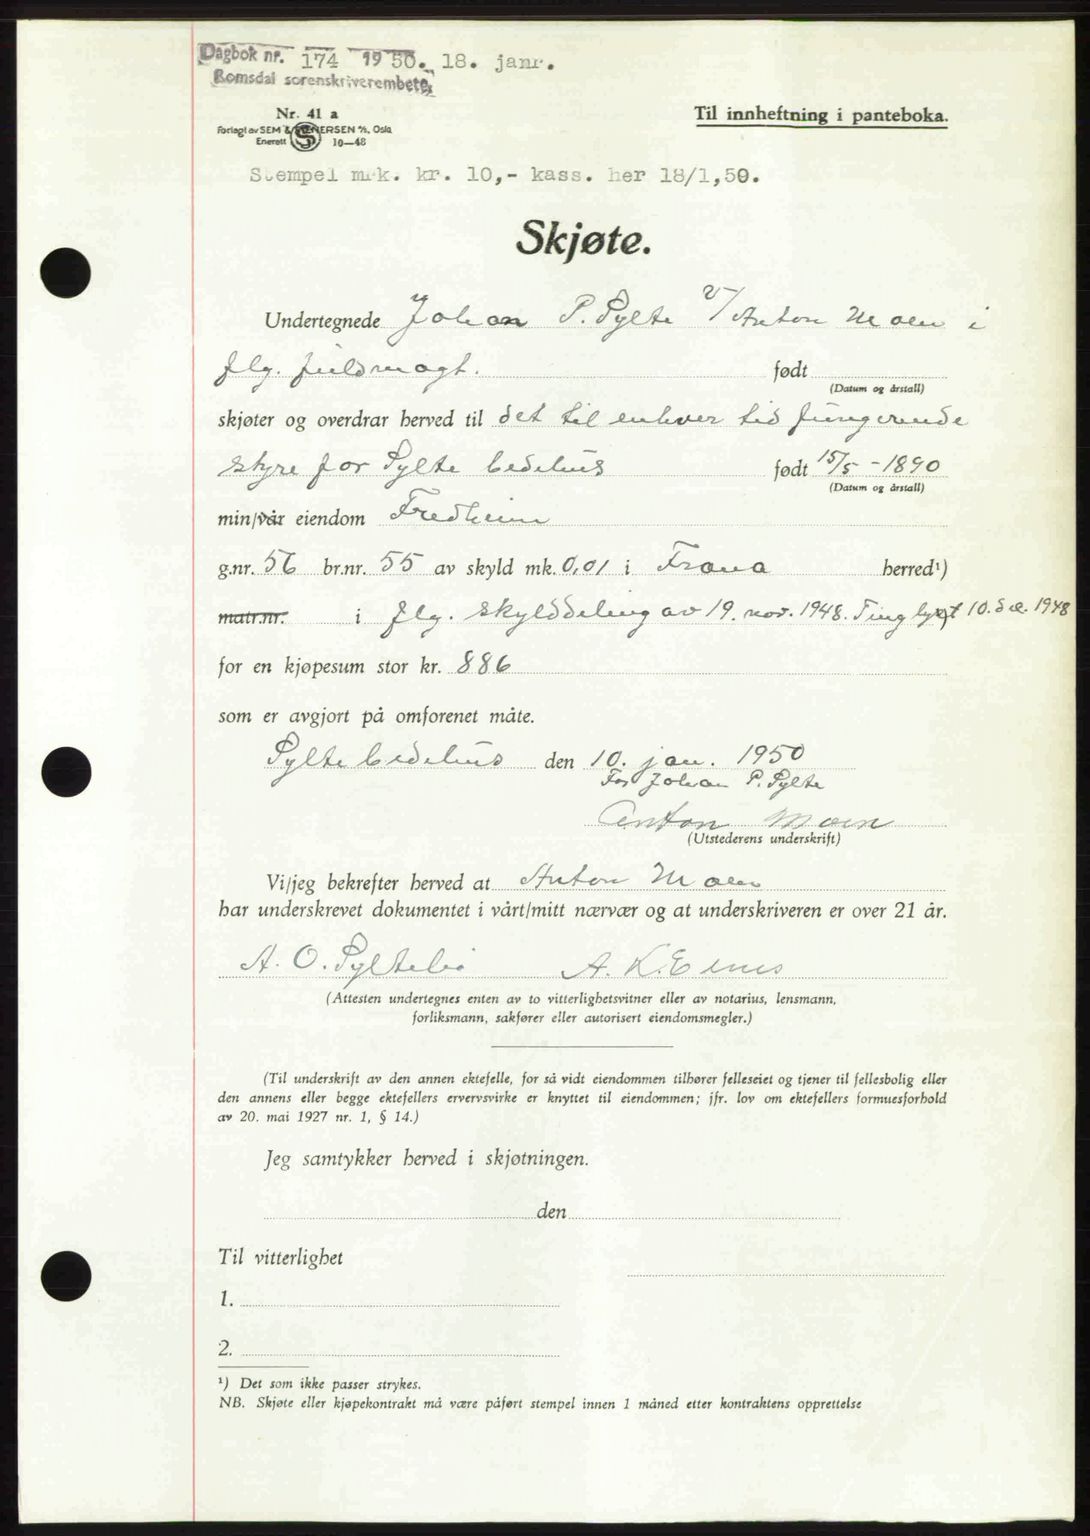 Dagbok nr. 174 1950. 18. janr.
Romsdal sorenskriverembete
Nr. 41 a
Forlagt av SEM & STENERSEN A/S, Oslo
Enerett S 10—48
Til innheftning i panteboka.
Stempel mrk. kr. 10,- kass. her 18/1,50.
Skjøte.
Undertegnede Johan P. Sylte v/ Anton Moen i
flg. fuldmagt. født
(Datum og årstall)
skjøter og overdrar herved til det til enhver tid fungerende
styre for Sylte bedehus født 15/5 - 1890
(Datum og årstall)
min/vår eiendom Fredheim
g.nr. 56 br.nr. 55 av skyld mk. 0,01 i Frana herred¹)
matr.nr. i flg. skylddeling av 19. nov. 1948. Tinglyst 10. des. 1948
for en kjøpesum stor kr. 886
som er avgjort på omforenet måte.
Sylte bedehus den 10. jan. 1950
For Johan P. Sylte
Anton Moen
(Utstederens underskrift)
Vi/jeg bekrefter herved at Anton Moen
har underskrevet dokumentet i vårt/mitt nærvær og at underskriveren er over 21 år.
A. O. Syltelid A. K.
(Attesten undertegnes enten av to vitterlighetsvitner eller av notarius, lensmann,
forliksmann, sakfører eller autorisert eiendomsmegler.)
(Til underskrift av den annen ektefelle, for så vidt eiendommen tilhører felleseiet og tjener til fellesbolig eller
den annens eller begge ektefellers ervervsvirke er knyttet til eiendommen; jfr. lov om ektefellers formuesforhold
av 20. mai 1927 nr. 1, § 14.)
Jeg samtykker herved i skjøtningen.
den
Til vitterlighet
1.
2.
¹) Det som ikke passer strykes.
NB. Skjøte eller kjøpekontrakt må være påført stempel innen 1 måned etter kontraktens opprettelse